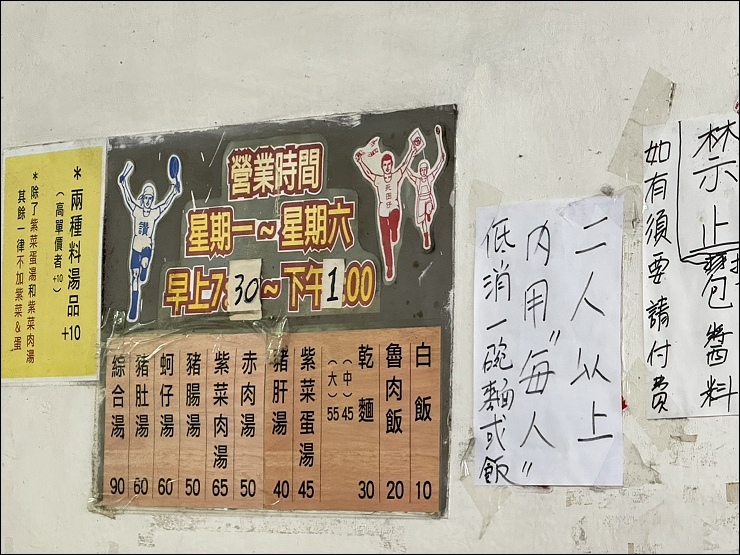 營業時間
星期一～星期六
早上7:30～下午1:00
白飯 10
魯肉飯 20
乾麵 30
（中）45
（大）55
紫菜蛋湯 45
豬肝湯 40
赤肉湯 50
紫菜肉湯 65
豬腸湯 50
蚵仔湯 60
豬肚湯 60
綜合湯 90
＊兩種料湯品+10
（高單價者+10）
＊除了紫菜蛋湯和紫菜肉湯
其餘一律不加紫菜&蛋
讚
二人以上
內用"每人"
低消一碗麵或飯
禁止包醬料
如有須要請付費